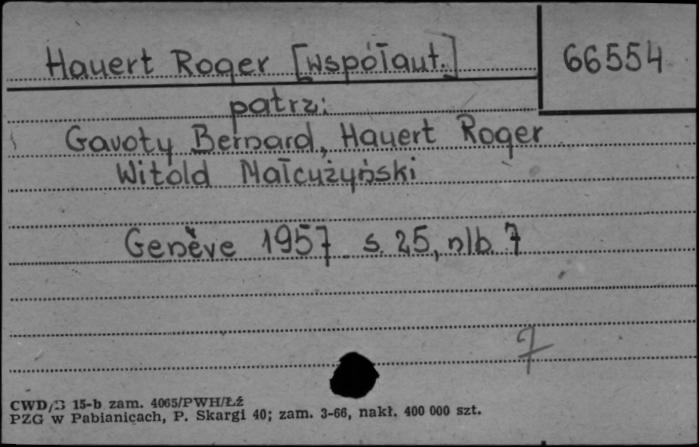 Hauert Roger [współaut.]
66554
patrz:
Gavoty Bernard, Hauert Roger
Witold Małcużyński
Genève 1957 s. 25, nlb. 7
7
CWD/B 15-b zam. 4065/PWH/Łź
PZG w Pabianicach, P. Skargi 40; zam. 3-66, nakł. 400 000 szt.